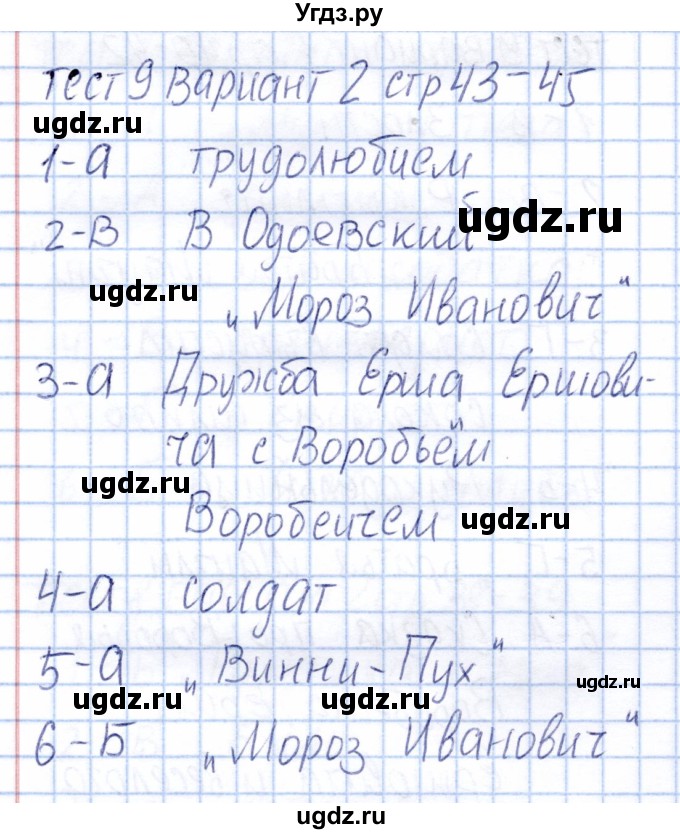 Угдз.ру
тест 9 Вариант 2 стр 43-45
ugdz.ru
1-а трудолюбием
ugdz.ru
2-В В Одоевский
ugdz.ru
„Мороз Иванович"
3-а Дружба Ерша Ершови-
ча с Воробьём
ugdz.ru
Воробеичем
ugdz.ru
4-а солдат
5-а „Винни-Пух"
ugdz.ru ugdz.ru ugdz.ru
6-Б „Мороз Иванович"
ugdz.ru